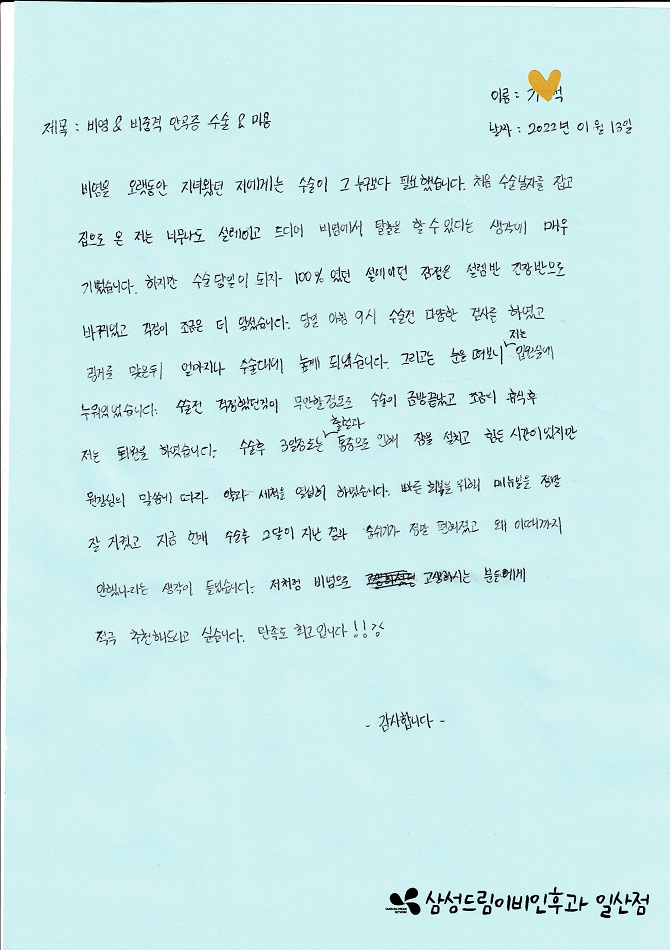 이름 : 기 석
제목 : 비염 & 비중격 만곡증 수술 & 미용
날짜 : 2022년 01월 13일
비염을 오랫동안 지녀왔던 저에게는 수술이 그 누구보다 필요했습니다. 처음 수술날자를 잡고
집으로 온 저는 너무나도 설레이고 드디어 비염에서 탈출을 할 수 있다는 생각에 매우
기뻤습니다. 하지만 수술당일이 되자 100% 였던 설레이던 감정은 설렘반 긴장반으로
바뀌었고 걱정이 조금은 더 앞섰습니다. 당일 아침 9시 수술전 다양한 검사를 하였고
링거를 맞은뒤 얼마지나 수술대에 눕게 되었습니다. 그리고는 눈을 떠보니 저는 입원실에
누워있었습니다. 수술전 걱정했던것이 무안할정도로 수술이 금방끝났고 조금의 휴식후
저는 퇴원을 하였습니다. 수술후 3일정도는 출혈과 통증으로 인해 잠을 설치고 힘든 시간이였지만
원장님의 말씀에 따라 약과 세척을 열심히 하였습니다. 빠른 회복을 위해 메뉴얼을 정말
잘 지켰고 지금 현재 수술후 2달이 지난 결과 숨쉬기가 정말 편해졌고 왜 이때까지
안했나라는 생각이 들었습니다. 저처럼 비염으로 고생하시는 분들에게
적극 추천해드리고 싶습니다. 만족도 최고입니다!!
- 감사합니다 -
삼성드림이비인후과 일산점